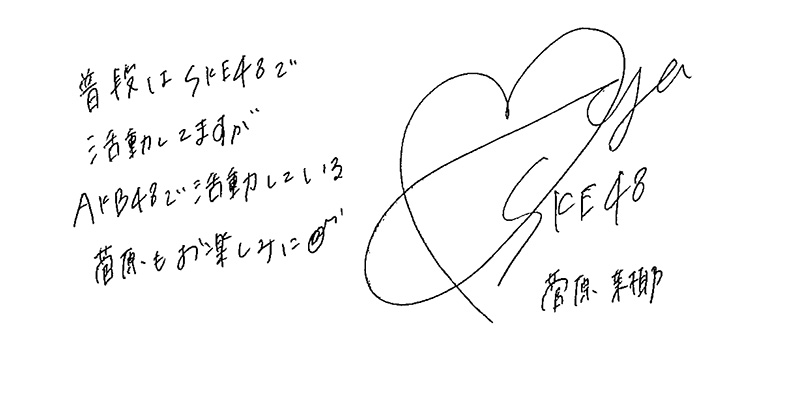 普段はSKE48で
活動してますが
AKB48で活動している
菅原もお楽しみに
ya
SKE48
菅原 茉椰